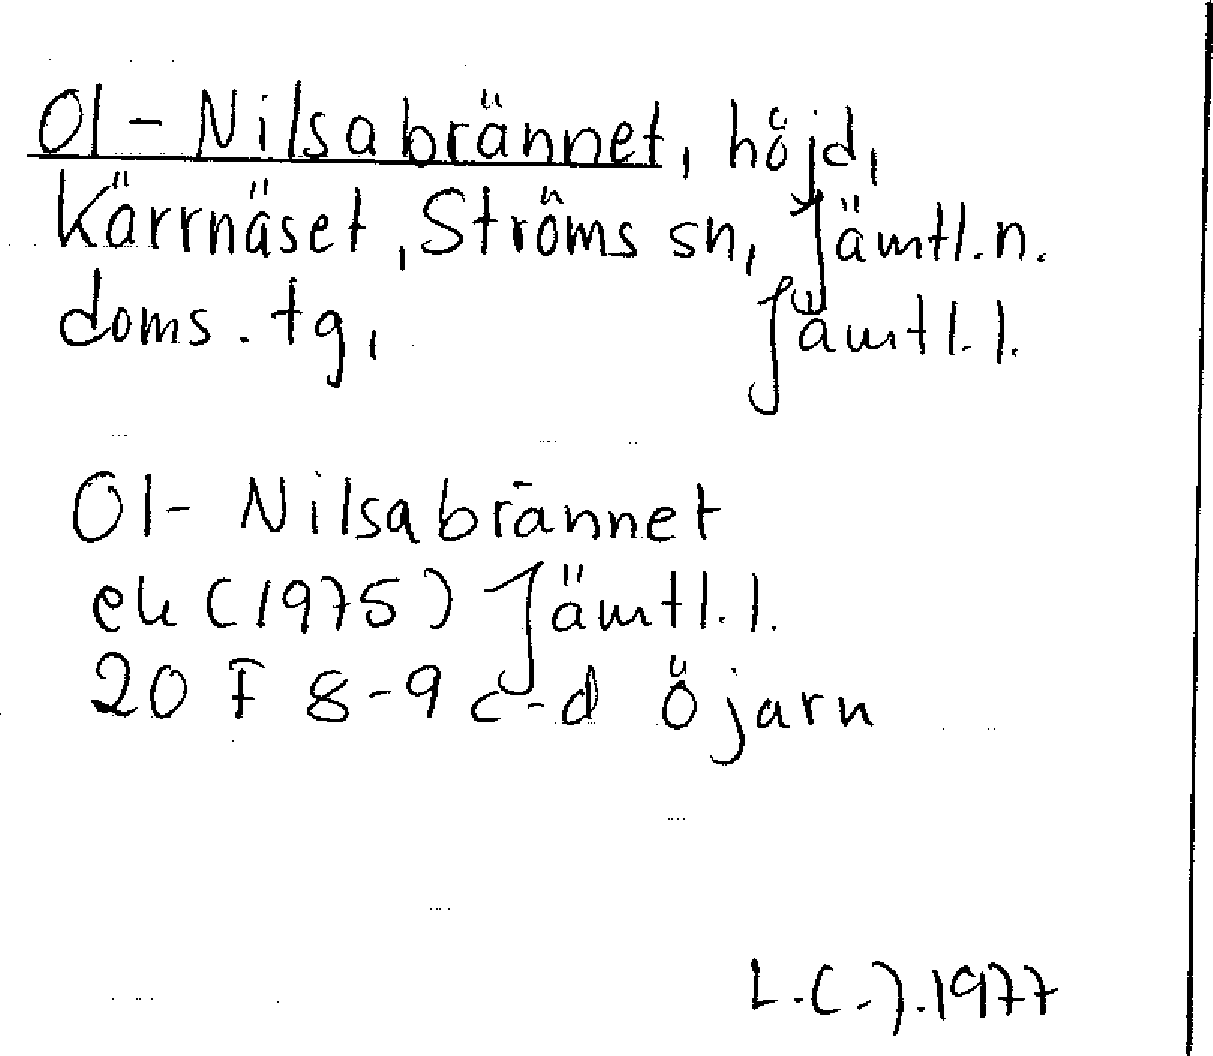 Ol-Nilsabrännet, höjd,
Kärrnäset, Ströms sn, Jämtl.n.
doms.tg, Jämtl.l.
Ol-Nilsabrännet
ek (1975) Jämtl.l.
20 F 8-9 c-d Öjarn
1977